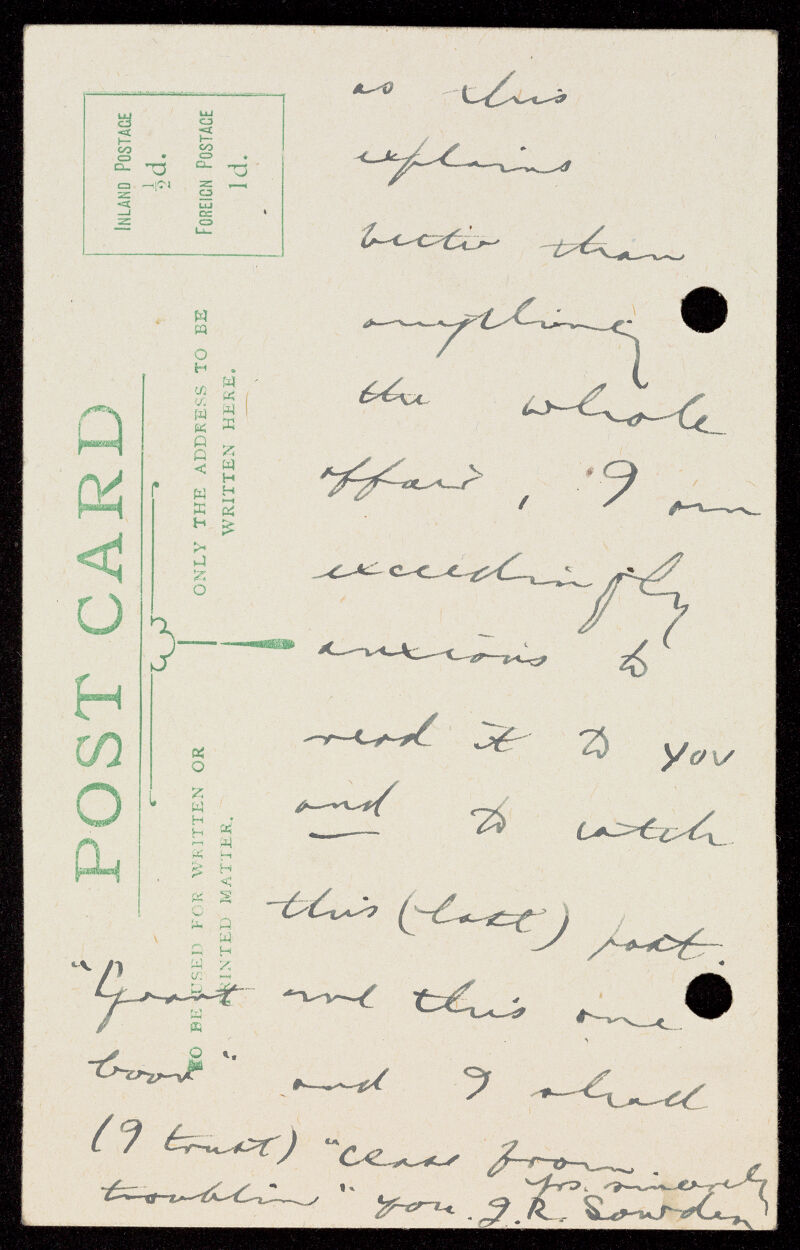 POST CARD
INLAND POSTAGE
½d.
FOREIGN POSTAGE
1d.
TO BE USED FOR WRITTEN OR
PRINTED MATTER.
ONLY THE ADDRESS TO BE
WRITTEN HERE.
as this
explains
better than
anything
the whole
affair, I am
exceedingly
anxious to
read it to you
and to catch
this (last) post.
"Grant me this one
boon" and I shall
(I trust) "cease from
troublin" you.
yrs. sincerely
J. R. Sowden